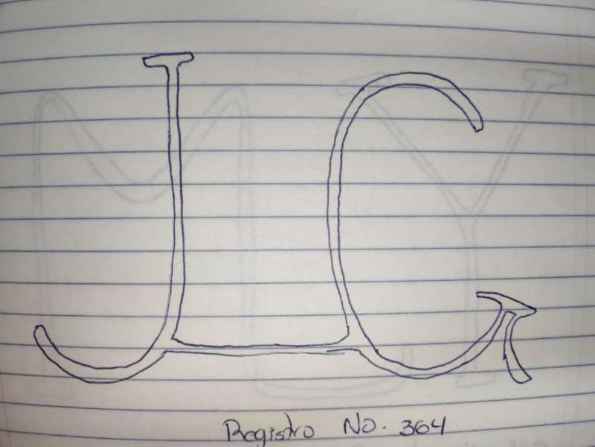 JC
Registro No. 364